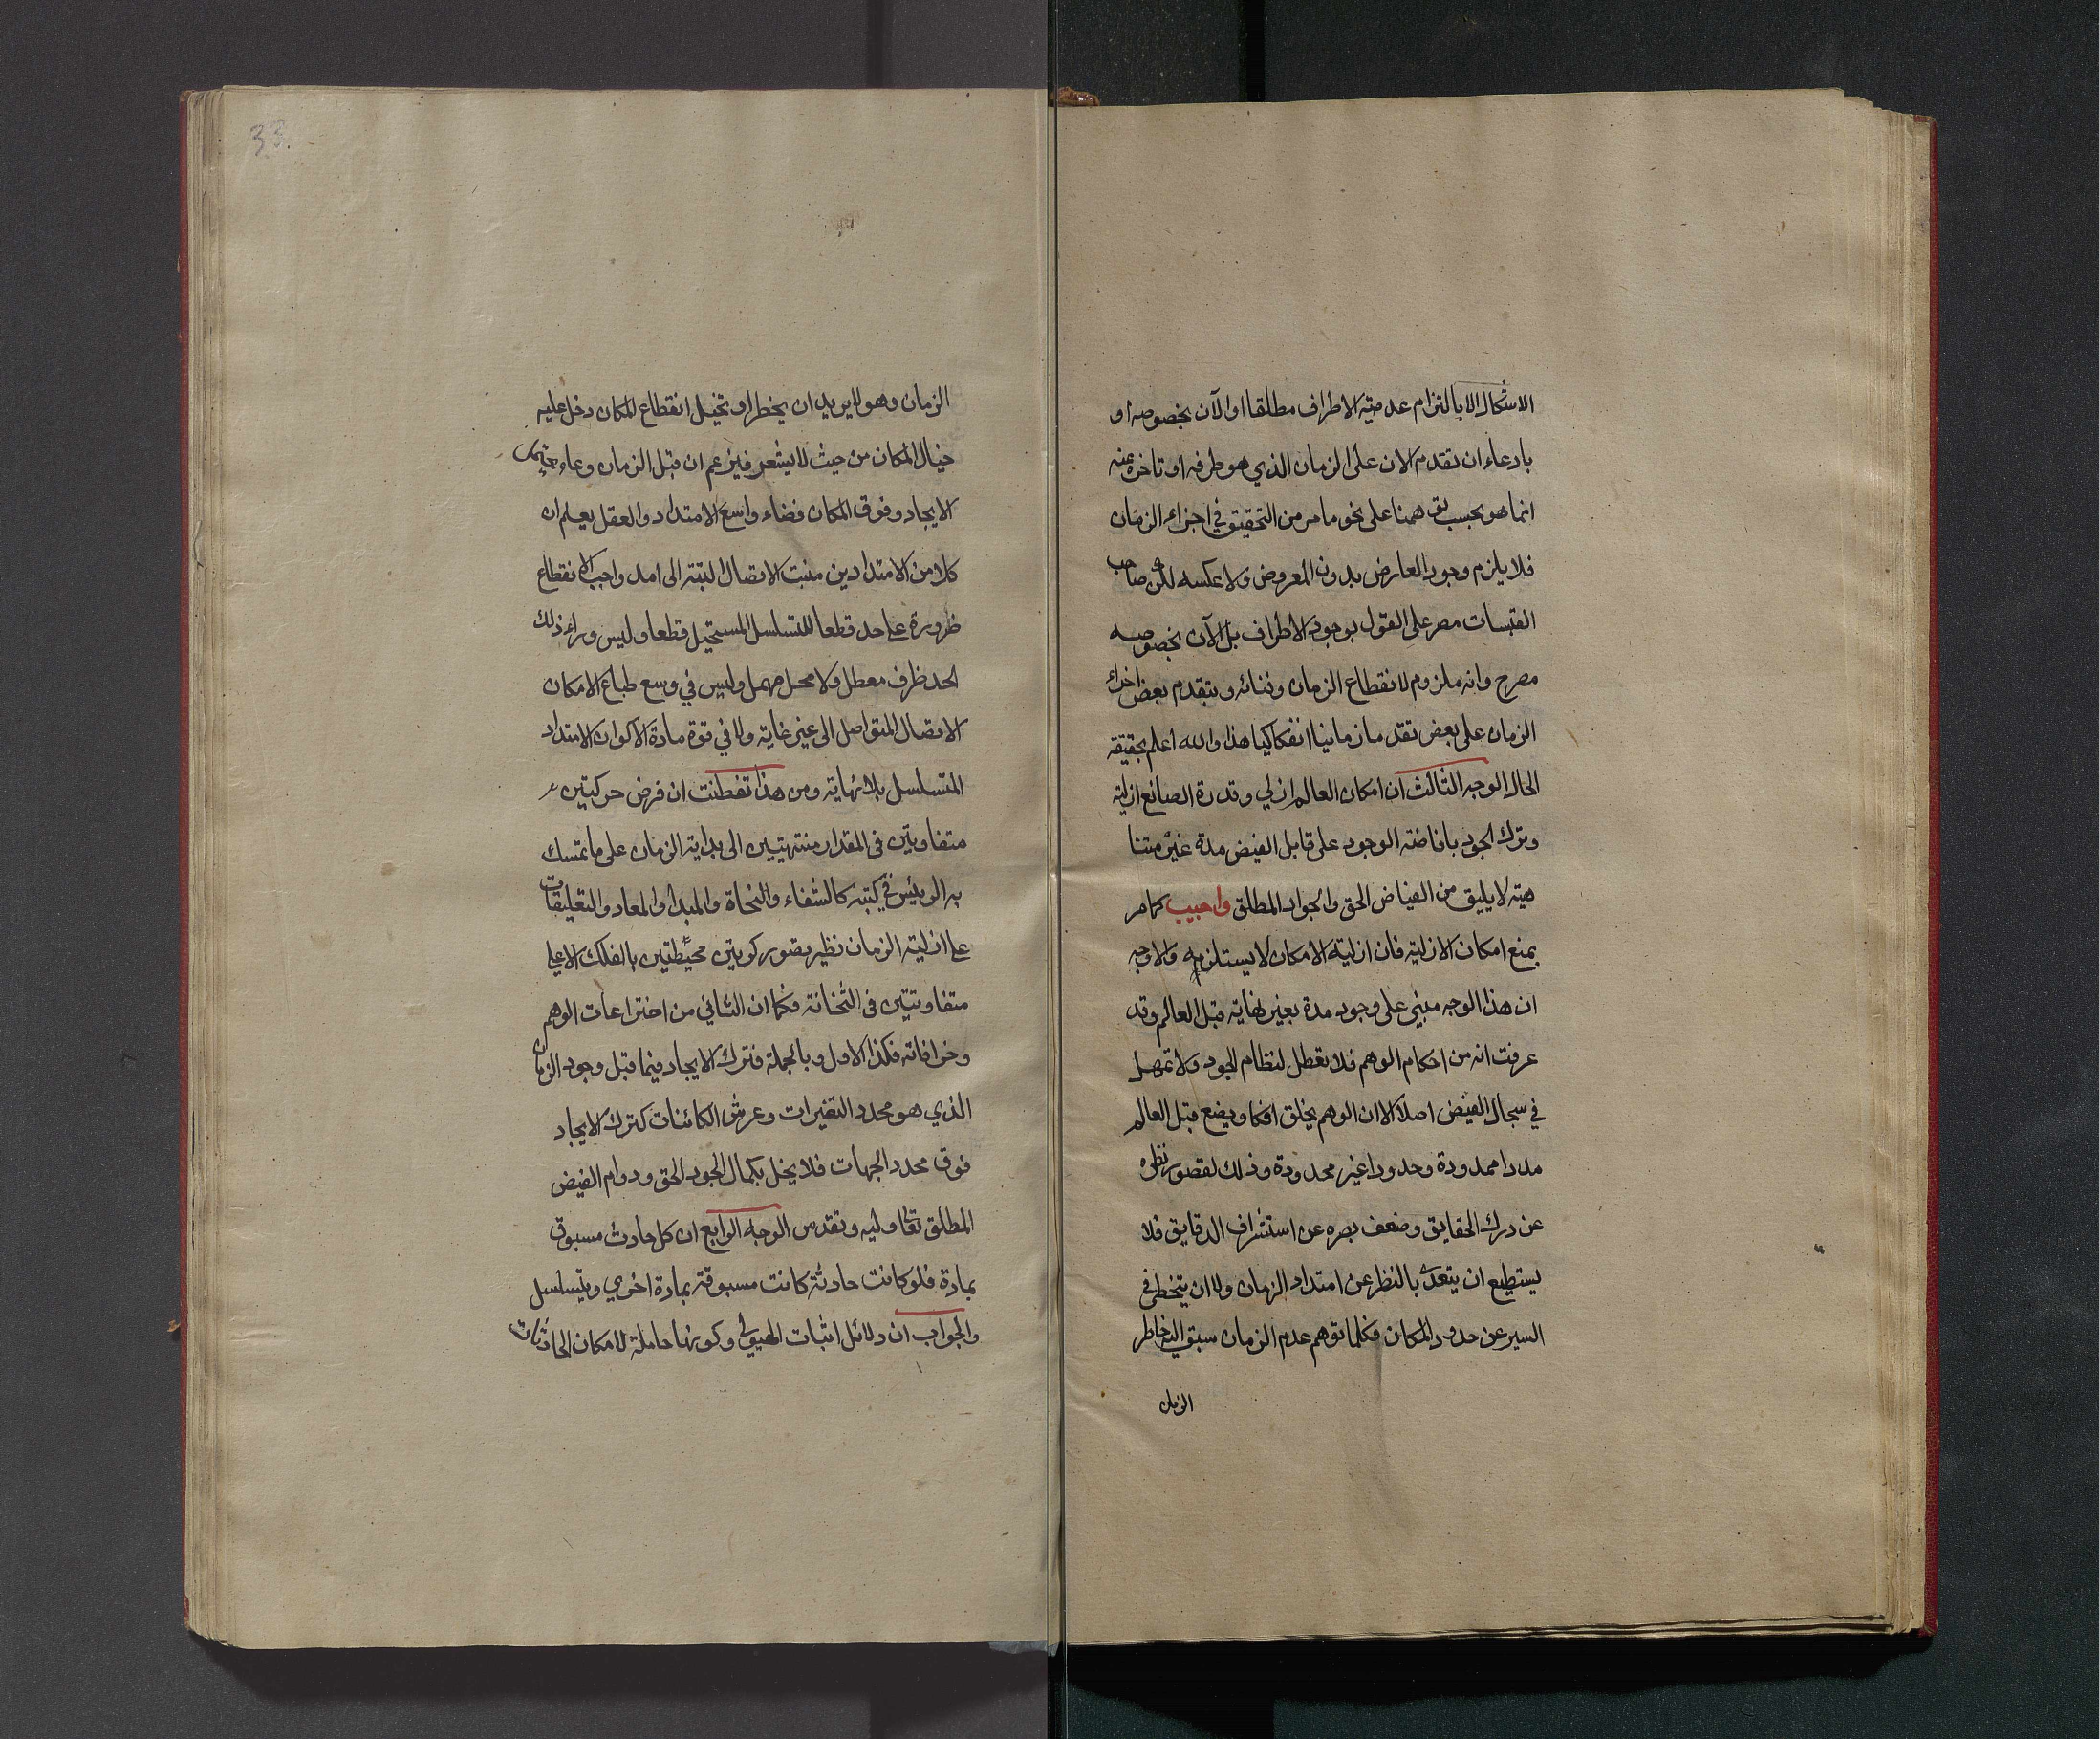 الاشكال الا بالتزام عدميته الاطراف مطلقا او الآن بخصوصه او
بادعاء ان تقدم الان على الزمان الذي هو طرفه او تاخره عنه
انما هو بحسب توهمنا على نحو ما مر من التحقيق في اجزاء الزمان
فلا يلزم وجود العارض بدون المعروض ولا عكسه لكن صاحب
القبسات مصر على القول بوجود الاطراف بل الآن بخصوصه
مصرح وانه ملزوم لانقطاع الزمان وفنائه وبتقدم بعض اجزاء
الزمان على بعض تقدما زمانيا انفكاكيا هذا والله اعلم بحقيقة
الحال الوجه الثالث ان امكان العالم ازلي وقدرة الصانع ازلية
وترك الجود بافاضة الوجود على قابل الفيض مدة غير متنا
هية لا يليق من الفياض الحق والجواد المطلق واجيب كما مر
بمنع امكان الازلية فان ازلية الامكان لا يستلزمه والاوجه
ان هذا الوجه مبني على وجود مدة بغير نهاية قبل العالم وقد
عرفت انه من احكام الوهم فلا تعطل لنظام الجود ولا تمهل
في سجال الفيض اصلا الا ان الوهم يخلق افكا ويضع قبل العالم
مددا ممدودة وحدودا غير محدودة وذلك لقصور نظره
عن درك الحقايق وضعف بصره عن استشراف الدقايق فلا
يستطيع ان يتعدى بالنظر عن امتداد الزمان ولا ان يتخطى في
السير عن حدود المكان فكلما توهم عدم الزمان سبق اليه خاطر
الزمان
33.
الزمان وهو لا يريد ان يخطر او تخيل انقطاع المكان دخل عليه
خيال المكان من حيث لا يشعر فيزعم ان قبل الزمان وعاء
الايجاد وفوق المكان فضاء واسع الامتداد والعقل يعلم ان
كلا من الامتدادين منبت الاتصال البتة الى امد واجب الانقطاع
ضرورة على حد قطعا للتسلسل المستحيل قطعا وليس وراء ذلك
الحد ظرف معطل ولا محل مهمل وليس في وسع طباع الامكان
الاتصال المتواصل الى غير غاية ولا في قوة مادة الاكوان الامتداد
المتسلسل بلا نهاية ومن هذا تفطنت ان فرض حركتين
متفاوتين في المقدار منتهيتين الى بداية الزمان على ما تمسك
به الرئيس في كتبه كالشفاء والنجاة والمبدا والمعاد والتعليقات
على ازلية الزمان نظير تصور كرويتين محيطتين بالفلك الاعلى
متفاوتتين في الثخانة فكما ان الثاني من اختراعات الوهم
وخرافاته فكذا الاول وبالجملة فترك الايجاد فيما قبل وجود الزمان
الذي هو محدد التغيرات وعرش الكائنات كترك الايجاد
فوق محدد الجهات فلا يخل بكمال الجود الحق ودوام الفيض
المطلق تعالى وليه وتقدس الوجه الرابع ان كل حادث مسبوق
بمادة فلو كانت حادثة كانت مسبوقة بمادة اخرى ويتسلسل
والجواب ان دلائل اثبات الهيولى وكونها حاملة لامكان الحادثات